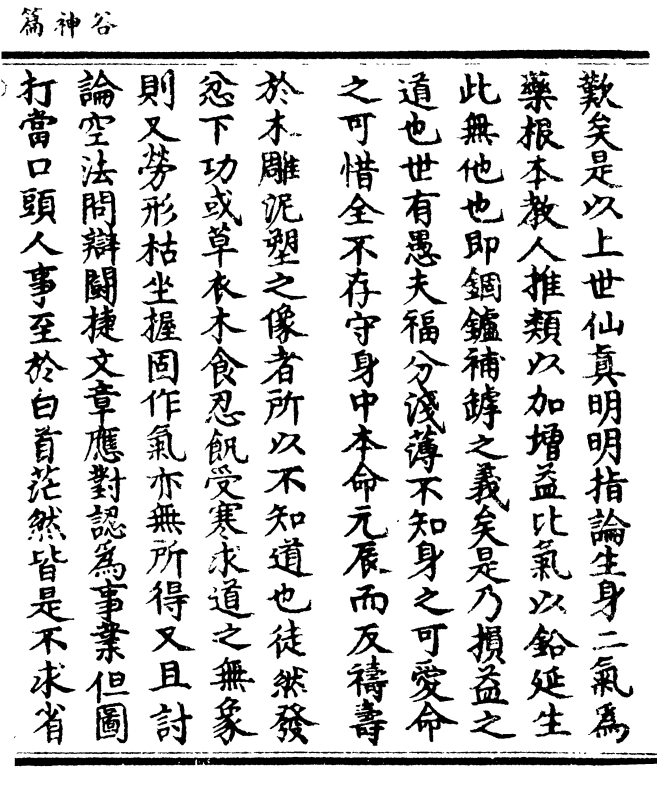 谷神篇
歎矣是以上世仙真明明指論生身二氣為
藥根本教人推類以加增益比氣以鉛延生
此無他也即錮鑪補罅之義矣是乃損益之
道也世有愚夫福分淺薄不知身之可愛命
之可惜全不存守身中本命元辰而反禱壽
於木雕泥塑之像者所以不知道也徒然發
忿下功或草衣木食忍飢受寒求道之無象
則又勞形枯坐握固作氣亦無所得又且討
論空法問辯鬪捷文章應對認為事業但圖
打當口頭人事至於白首茫然皆是不求省